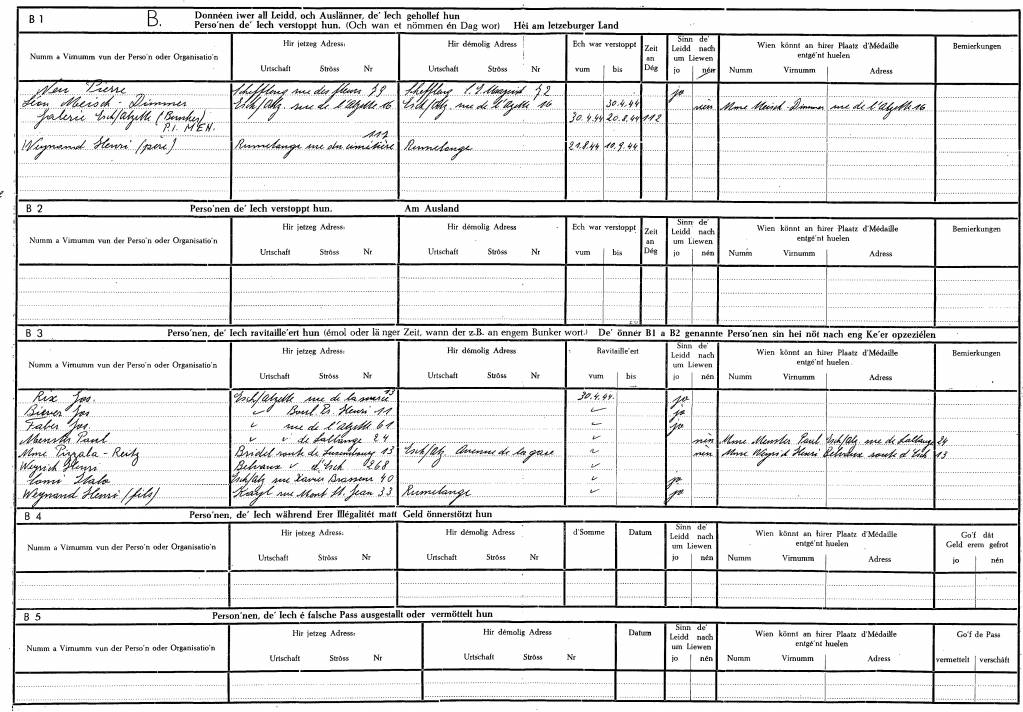 B 1 B. Donnéen iwer all Leidd, och Auslänner, de' Iech gehollef hun
Perso'nen de' Iech verstoppt hun. (Och wan et nömmen én Dag wor) Héi am letzeburger Land
Numm a Virnumm vun der Perso'n oder Organisatio'n Hir jetzeg Adress: Hir démolig Adress Ech war verstoppt Zeit an Dég Sinn de' Leidd nach um Liewen Wien könnt an hirer Plaatz d'Médaille entgé'nt huelen Bemierkungen
Urtschaft Ströss Nr Urtschaft Ströss Nr vum bis jo nén Numm Virnumm Adress
Neu Pierre Schifflang rue des fleurs 79 Schifflang 72 jo
Lion Meisch - Dimmer Esch/Alz. rue de l'Alzette 16 Esch/Alz. rue de l'Alzette 16 30.4.44 nein Mme Meisch-Dimmer rue de l'Alzette 16
Galerie Esch/Alzette (Bunker) 30.4.44 20.8.44 112
P.I. MEN.
112
Weynand Henri (père) Rumelange rue du cimetière Rumelange 21.8.44 10.9.44
B 2 Perso'nen de' Iech verstoppt hun. Am Ausland
Numm a Virnumm vun der Perso'n oder Organisatio'n Hir jetzeg Adress: Hir démolig Adress Ech war verstoppt Zeit an Dég Sinn de' Leidd nach um Liewen Wien könnt an hirer Plaatz d'Médaille entgé'nt huelen Bemierkungen
Urtschaft Ströss Nr Urtschaft Ströss Nr vum bis jo nén Numm Virnumm Adress
B 3 Perso'nen, de' Iech ravitaille'ert hun (émol oder länger Zeit, wann der z.B. an engem Bunker wort.) De' önner B1 a B2 genannte Perso'nen sin hei nöt nach eng Ke'er opzeziélen
Numm a Virnumm vun der Perso'n oder Organisatio'n Hir jetzeg Adress: Hir démolig Adress Ravitaille'ert Sinn de' Leidd nach um Liewen Wien könnt an hirer Plaatz d'Médaille entgé'nt huelen. Bemierkungen
Urtschaft Ströss Nr Urtschaft Ströss Nr vum bis jo nén Numm Virnumm Adress
Rix Jos. Esch/Alzette rue de la 13 30.4.44. jo
Biever Jos " Boul. Pr. Henri 11 " jo
Faber Jos " rue de l'Alzette 61 " jo
Menster Paul " " de Lallange 24 " nein Mme Menster Paul Esch/Alz. rue de Lallange 24
Mme Pizzala - Reitz Bridel route de Luxembourg 13 Esch/Alz. Avenue de la gare " nein Mme Weyrich Henri Belvaux route d'Esch 13
Weyrich Henri Belvaux " d'Esch 268 "
Comi Italo Esch/Alz rue Xavier Brasseur 40 " jo
Weynand Henri (fils) Kayl rue Mont St. Jean 33 Rumelange " jo
B 4 Perso'nen, de' Iech während Erer Illegalitét matt Geld önnerstötzt hun
Numm a Virnumm vun der Perso'n oder Organisatio'n Hir jetzeg Adress: Hir démolig Adress d'Somme Datum Sinn de' Leidd nach um Liewen Wien könnt an hirer Plaatz d'Médaille entgé'nt huelen Go'f dât Geld erem gefrot
Urtschaft Ströss Nr Urtschaft Ströss Nr jo nén Numm Virnumm Adress jo nén
B 5 Person'nen, de' Iech é falsche Pass ausgestallt oder vermöttelt hun
Numm a Virnumm vun der Perso'n oder Organisatio'n Hir jetzeg Adress: Hir démolig Adress Datum Sinn de' Leidd nach um Liewen Wien könnt an hirer Plaatz d'Médaille entgé'nt huelen Go'f de Pass
Urtschaft Ströss Nr Urtschaft Ströss Nr jo nén Numm Virnumm Adress vermettelt verschâft